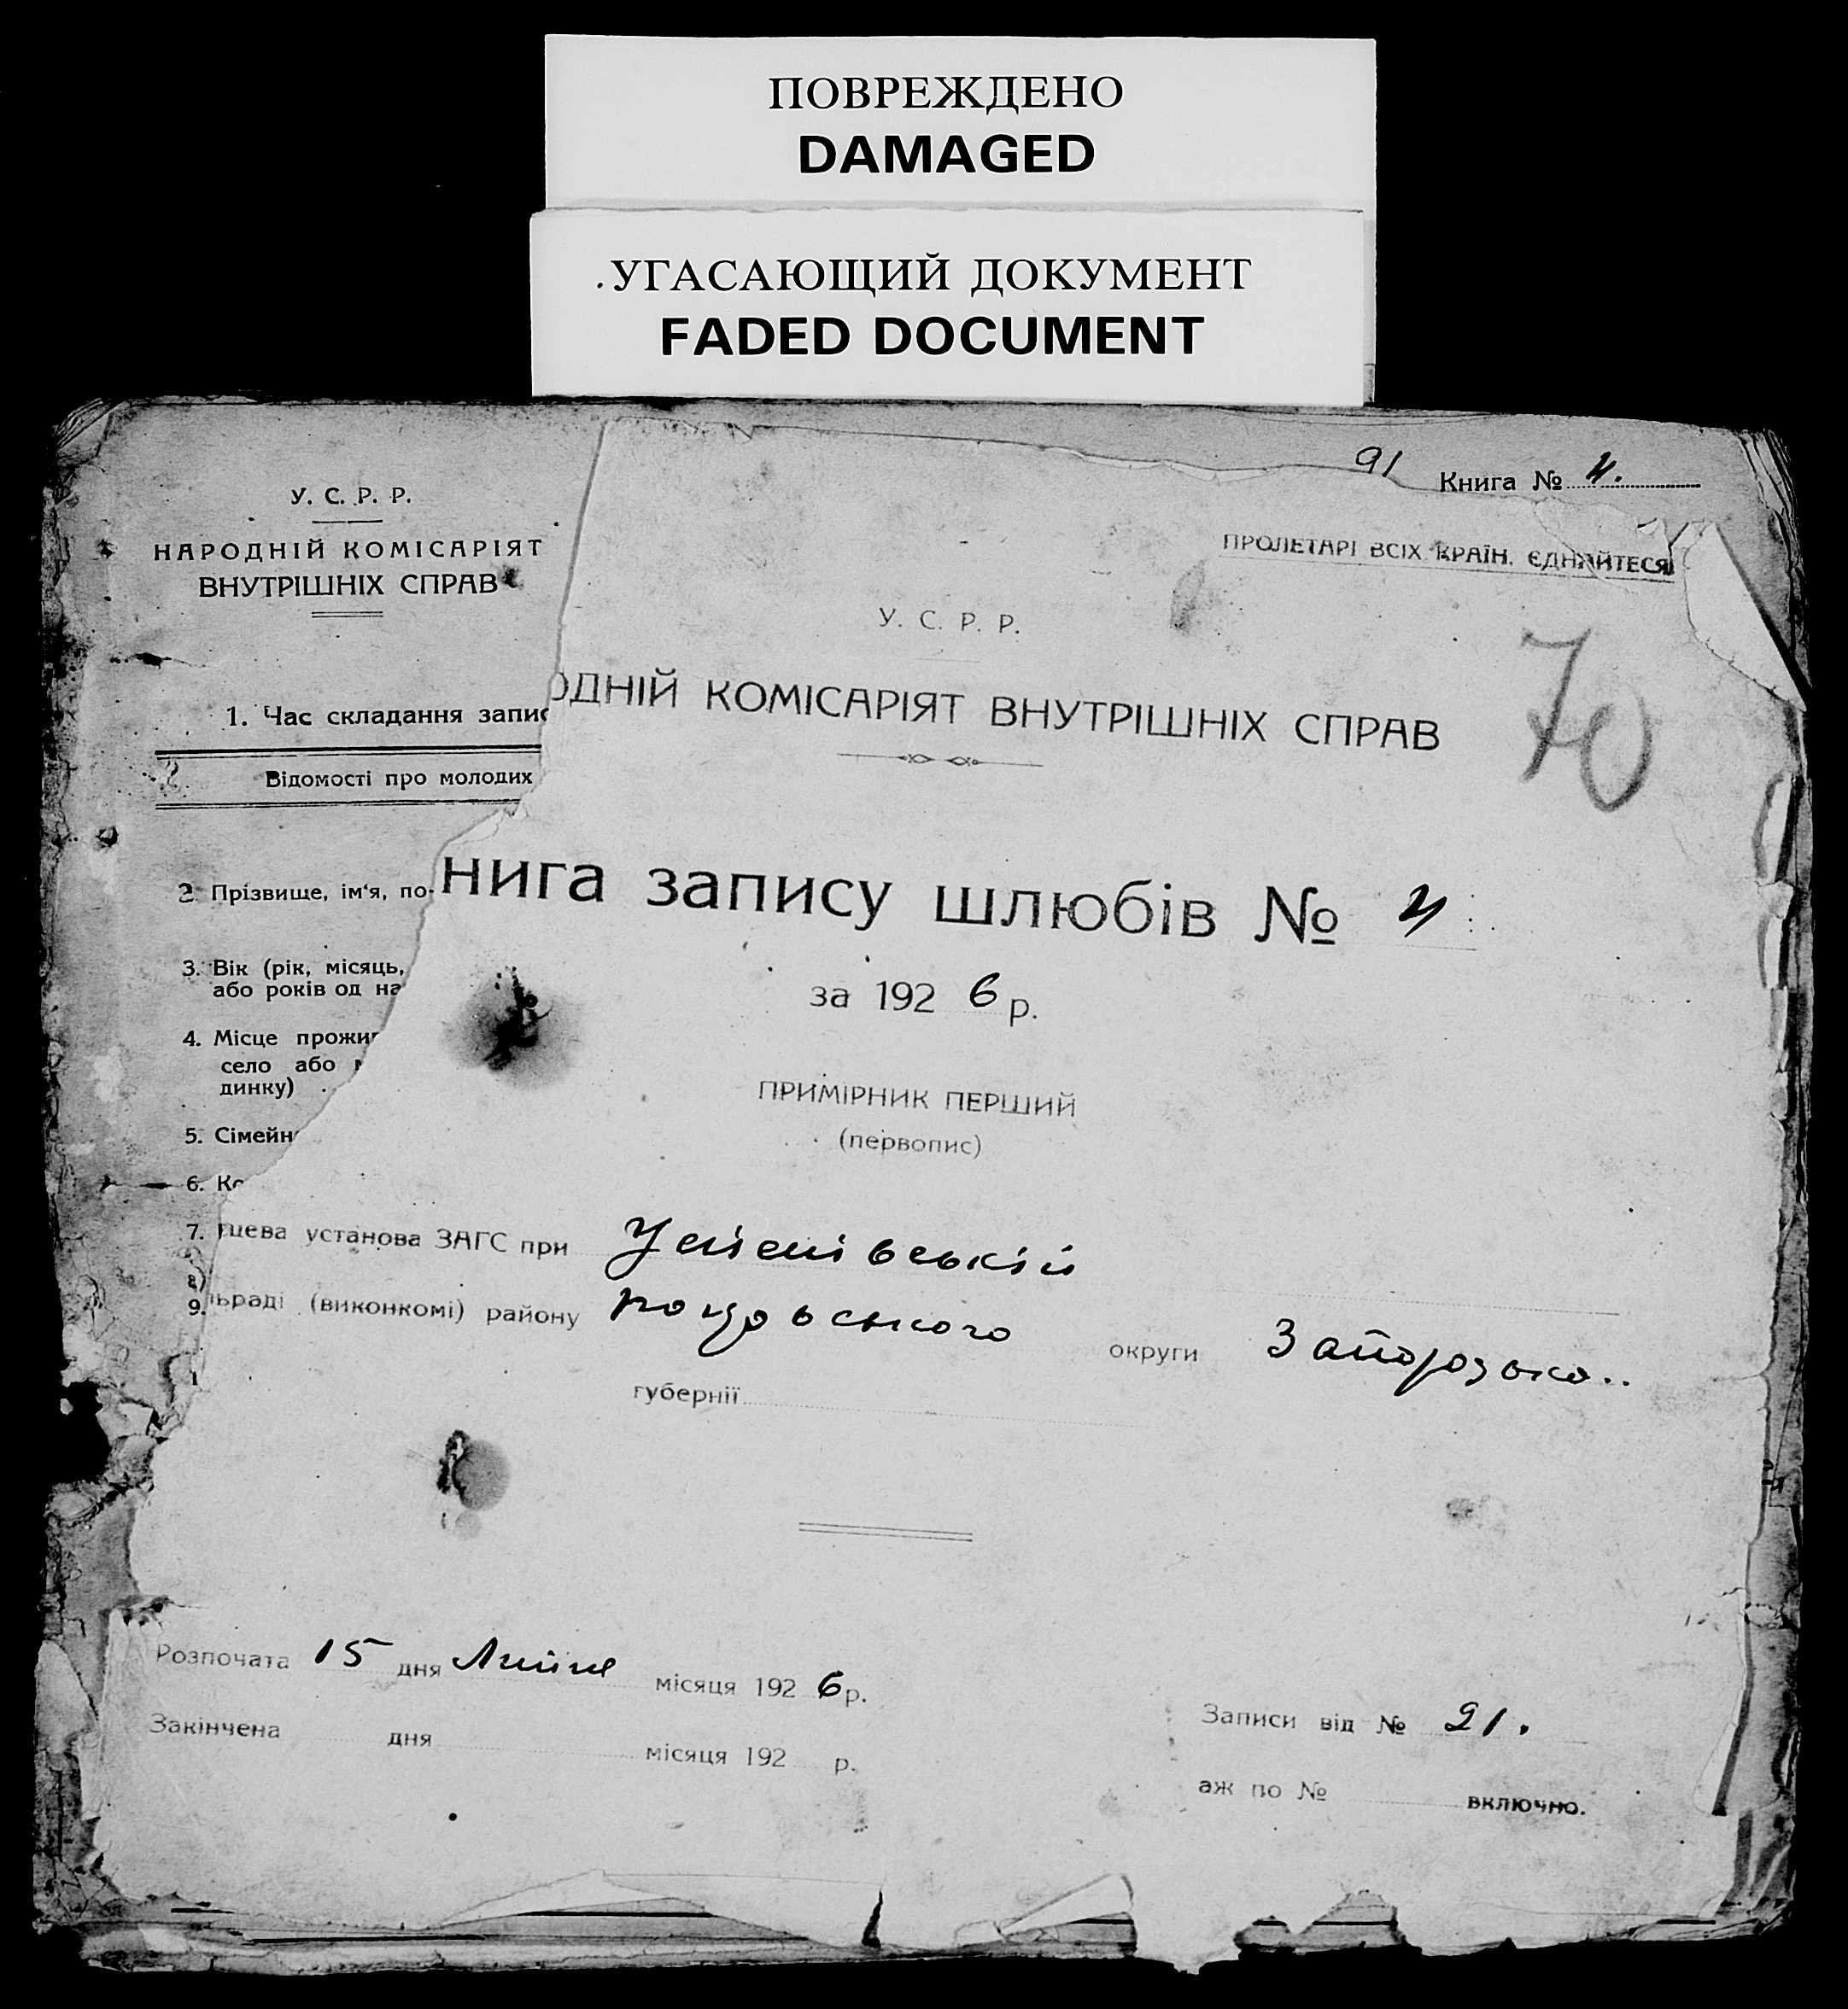 ПОВРЕЖДЕНО
DAMAGED
УГАСАЮЩИЙ ДОКУМЕНТ
FADED DOCUMENT
91 Книга №
У. С. Р. Р.
НАРОДНІЙ КОМІСАРІЯТ
ВНУТРІШНІХ СПРАВ
1. Час складання запис
Відомості про молодих
2. Прізвище, ім'я, по-
3. Вік (рік, місяць,
або років од на
4. Місце прожи
село або
динку)
5. Сімейн
6. Ко
7.
8)
9.
ПРОЛЕТАРІ ВСІХ КРАЇН, ЄДНАЙТЕСЯ
У. С. Р. Р.
ОДНІЙ КОМІСАРІЯТ ВНУТРІШНІХ СПРАВ
70
нига запису шлюбів №
за 1926 р.
ПРИМІРНИК ПЕРШИЙ
(первопис)
цева установа ЗАГС при
ьраді (виконкомі) району округи Запорізько..
губернії
Розпочата 15 дня Липня місяця 1926 р.
Закінчена дня місяця 192 р.
Записи від № 21.
аж по № включно.